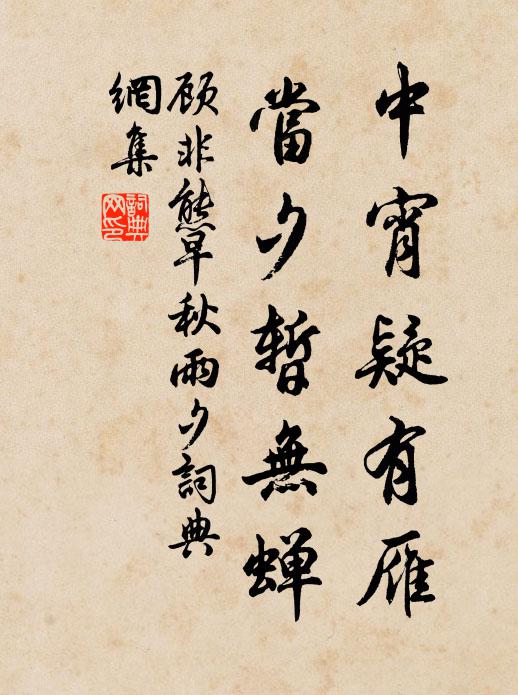 中宵疑有雁
當夕暫無蝉
顾非熊早秋雨夕詞典
網集
詞典
网印